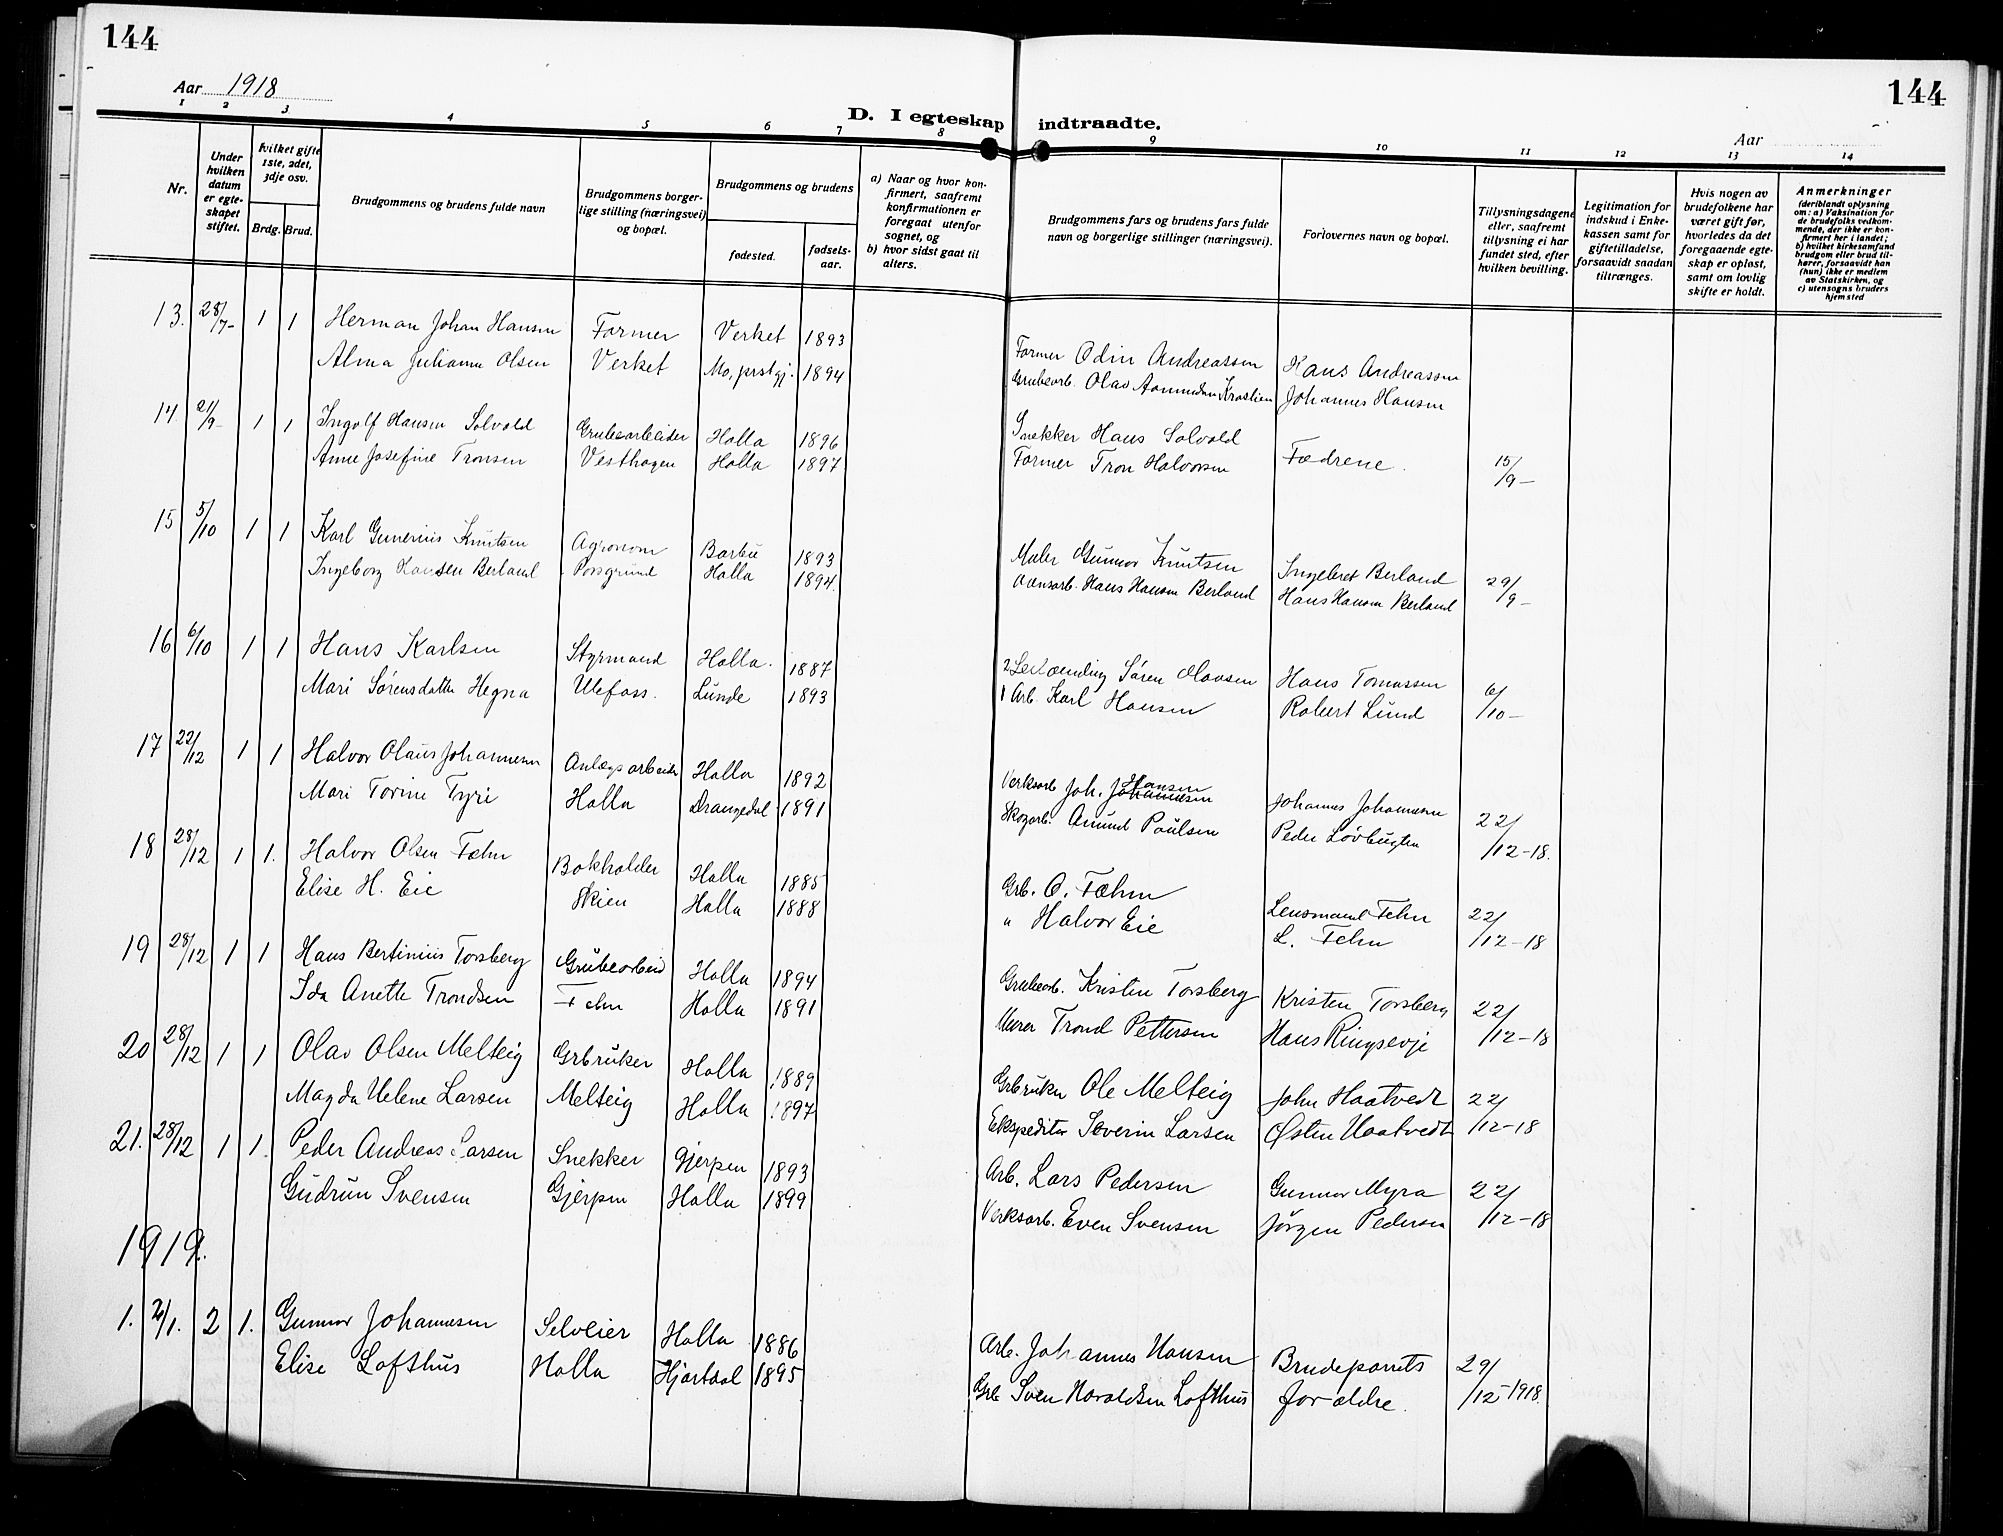 144
144
Aar 1918
Aar
D. I egteskap indtraadte.
1 2 3 4 5 6 7 8 9 10 11 12 13 14
Nr.
Under hvilken datum er egteskapet stiftet.
Hvilket gifte 1ste, 2det, 3dje osv.
Brdg. Brud.
Brudgommens og brudens fulde navn
Brudgommens borgerlige stilling (næringsvei) og bopæl.
Brudgommens og brudens
fødested.
fødselsaar.
a) Naar og hvor konfirmert, saafremt konfirmationen er foregaat utenfor sognet, og
b) hvor sidst gaat til alters.
Brudgommens fars og brudens fars fulde navn og borgerlige stillinger (næringsvei).
Forlovernes navn og bopæl.
Tillysningsdagene eller, saafremt tillysning ei har fundet sted, efter hvilken bevilling.
Legitimation for indskud i Enkekassen samt for giftetilladelse, forsaavidt saadan tiltrænges.
Hvis nogen av brudefolkene har været gift før, hvorledes da det foregaaende egteskap er opløst, samt om lovlig skifte er holdt.
Anmerkninger (deriblandt oplysning om: a) Vaksination for de brudefolks vedkommende, der ikke er konfirmert her i landet; b) hvilket kirkesamfund brudgom eller brud tilhører, forsaavidt han (hun) ikke er medlem av Statskirken, og c) utensogns bruders hjemsted
13. 28/7- 1 1 Herman Johan Hansen Former Verket 1893 Former Odin Andreassen Hans Andreassen
Alma Juliane Olsen Verket Mo, prstgj. 1894 Grubearb. Olav Aanundsen Johannes Hansen
14 21/9- 1 1 Ingolf Hansen Solvold Grubearbeider Holla 1896 Snekker Hans Solvold Fædrene. 15/9-
Anne Josefine Tronsen Vesthagen Holla 1897 Former Tron Halvorsen
15 5/10 1 1 Karl Gunerius Knutsen Agronom Barbu 1893 Maler Gunnar Knutsen Ingebret Berland 29/9-
Ingeborg Hansen Berland Porsgrund Holla 1894. Hans Hansen Berland Hans Hansen Berland
16 6/10 1 1 Hans Karlsen Styrmand Holla. 1887 2 Søren Olavsen Hans Tomassen 6/10-
Mari Sørensdatter Hegna Ulefoss. Lunde 1893 1 Arb. Karl Hansen Robert Lund
17 22/12 1 1 Halvor Olaus Johannesen Anlægsarbeider Holla 1892 Verksarb. Joh. Johannesen Hansen Johannes Johannesen 22/12-18.
Mari Torine Tyri Holla Drangedal 1891 Skogarb. Anund Paulsen Peder Løvbugten
18 28/12 1 1. Halvor Olsen Fæhn Bokholder Holla 1885 Grb. O. Fæhn Lensmand Fehn 22/12-18
Elise H. Eie Skien Holla 1888 " Halvor Eie L. Fehn
19 28/12 1 1 Hans Bertinius Torsberg Grubearbeid Holla 1894 Grubearb. Kristen Torsberg Kristen Torsberg 22/12-18
Ida Anette Trondsen Fehn Holla 1891 Murer Trond Pettersen Hans Ringsevje
20 28/12 1 1 Olav Olsen Melteig Grbruker Holla 1889 Grbruker Ole Melteig John Haatvedt 22/12-18
Magda Helene Larsen Melteig Holla 1897 Ekspeditør Severin Larsen Østen Haatvedt
21. 28/12 1 1. Peder Andreas Larsen Snekker Gjerpen 1893 Arb. Lars Pedersen Gunnar Myra 22/12-18
Gudrun Svensen Gjerpen Holla 1899 Verksarb. Even Svensen Jørgen Pedersen
1919.
1. 2/1. 2 1. Gunnar Johannesen Selveier Holla 1886 Arb. Johannes Hansen Brudeparrets 29/12-1918.
Elise Lofthus Holla Hjartdal 1895 Grb Sven Haraldsen Lofthus forældre.